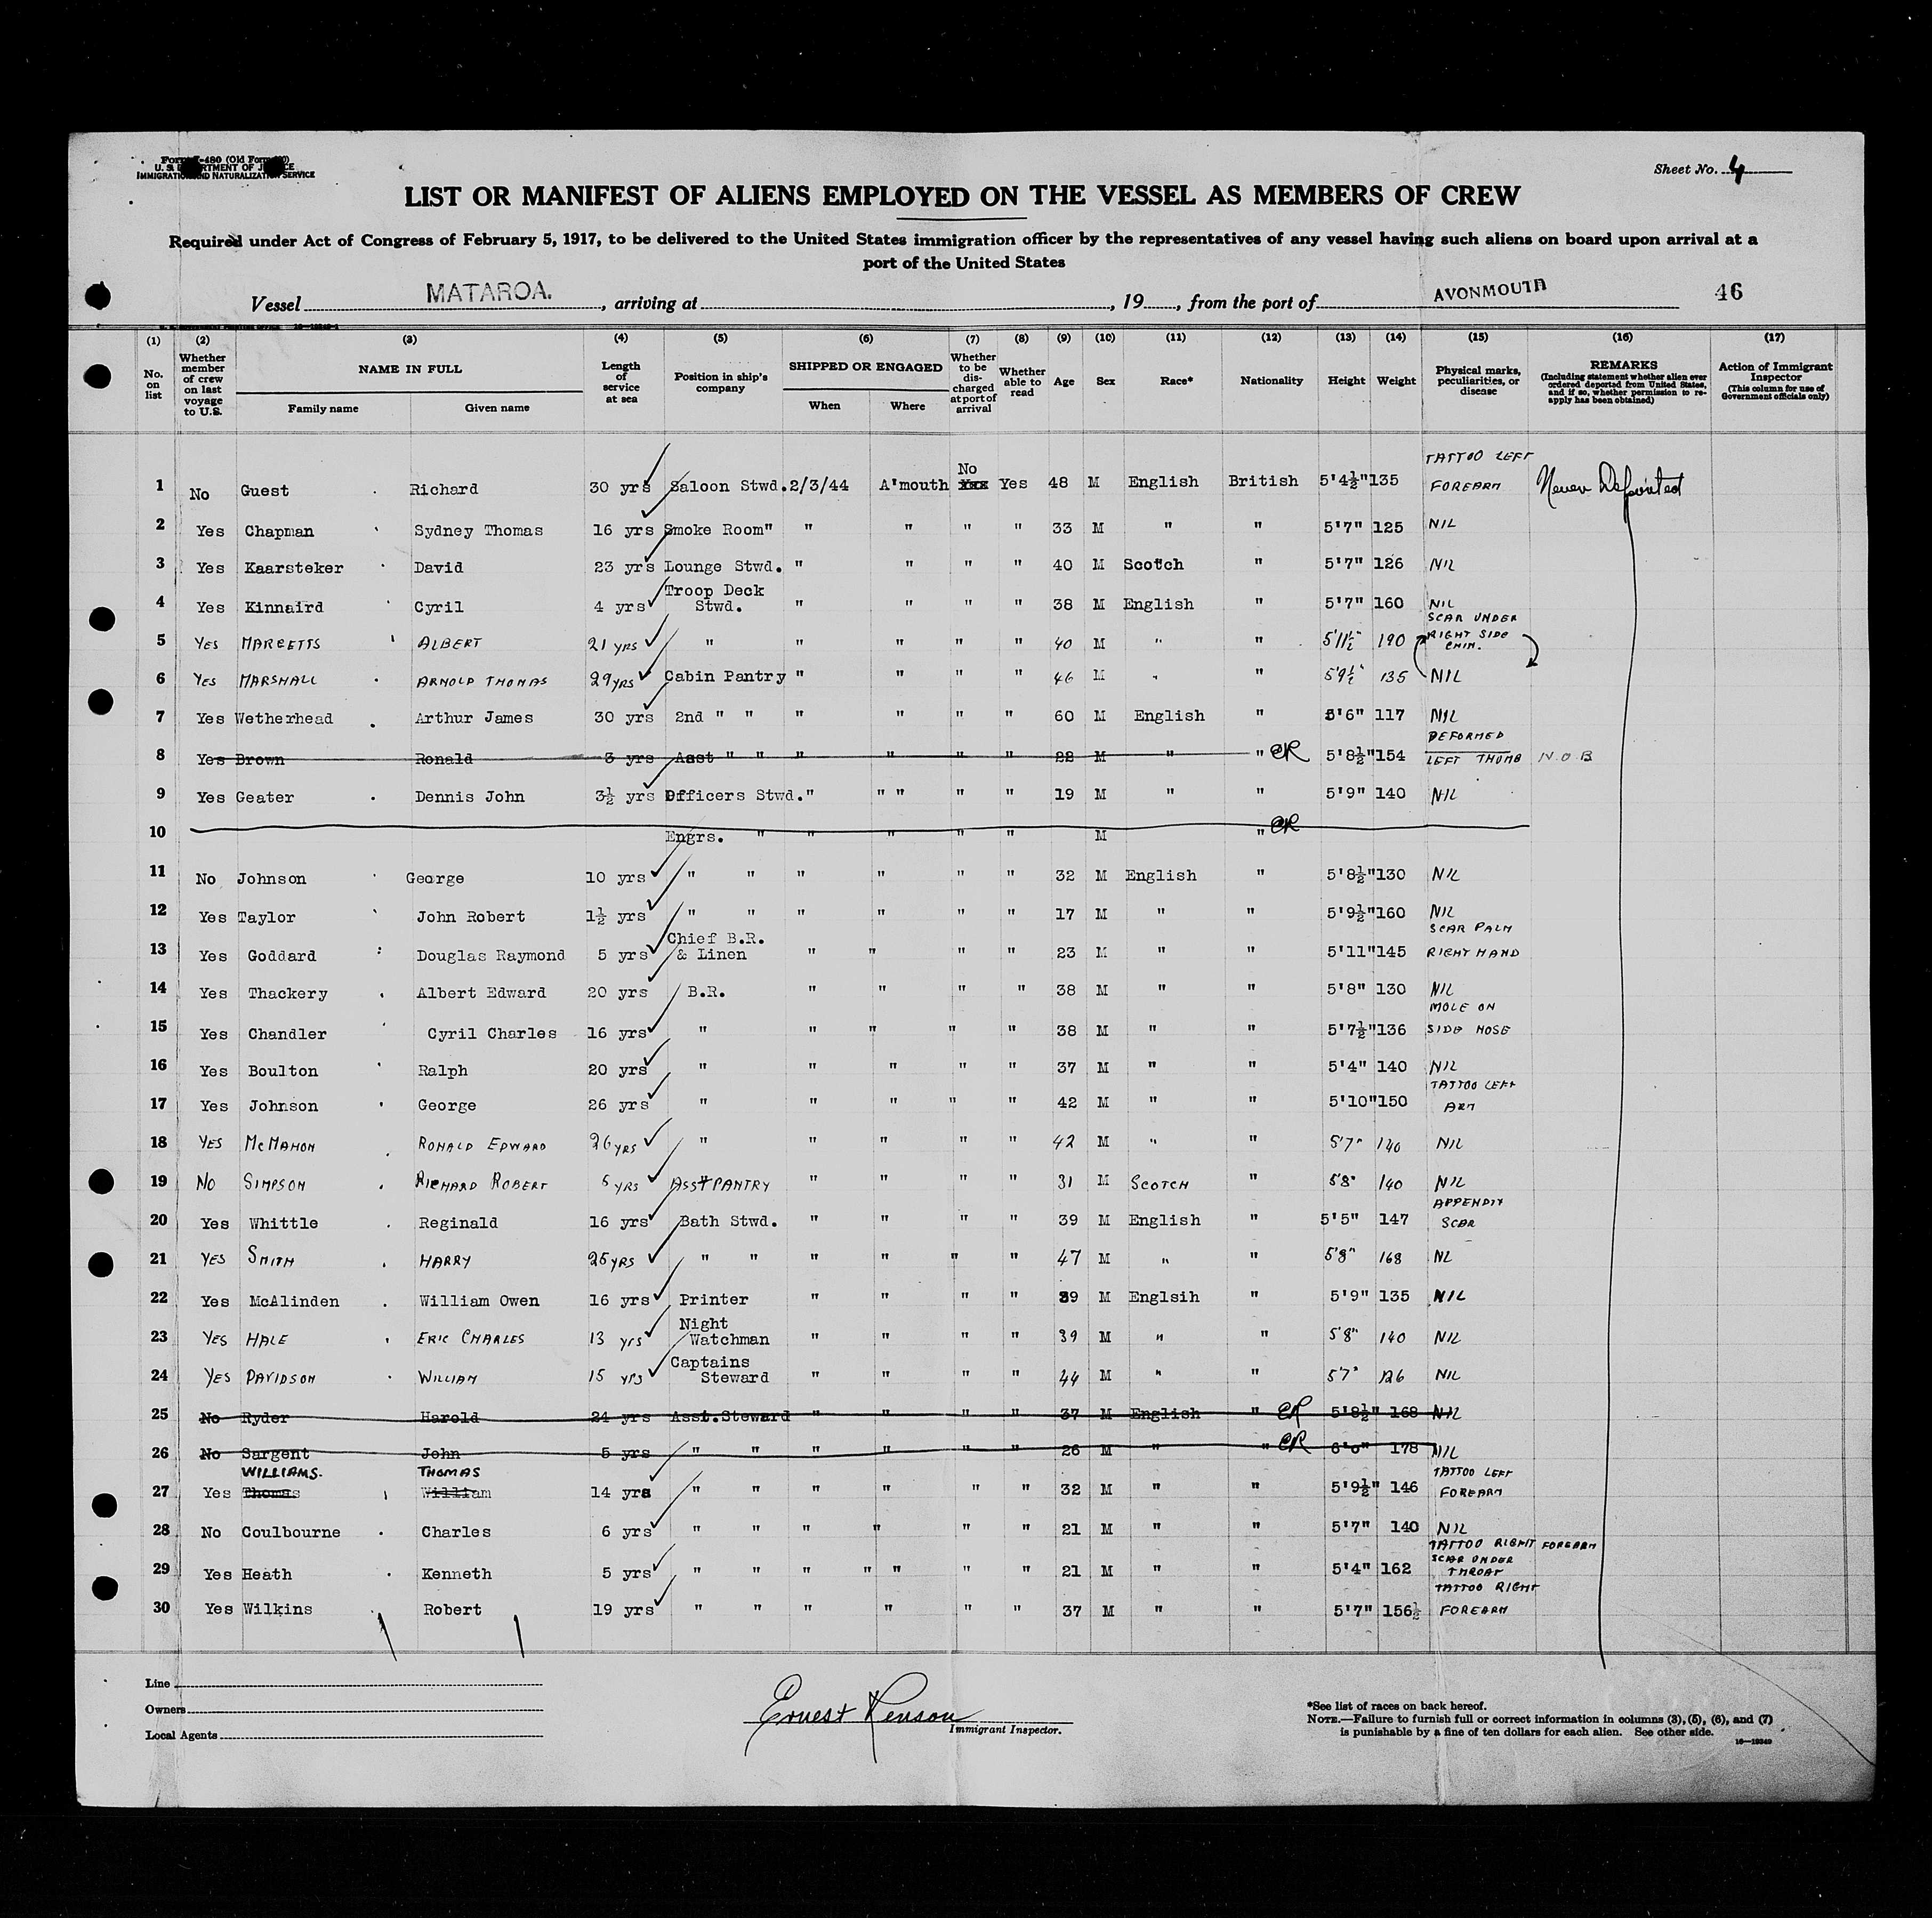 Form I-480 (Old Form
U. S. DEPARTMENT OF JUSTICE
IMMIGRATION AND NATURALIZATION SERVICE
Sheet No. 4
LIST OR MANIFEST OF ALIENS EMPLOYED ON THE VESSEL AS MEMBERS OF CREW
Required under Act of Congress of February 5, 1917, to be delivered to the United States immigration officer by the representatives of any vessel having such aliens on board upon arrival at a
port of the United States
Vessel MATAROA. , arriving at , 19 , from the port of AVONMOUTH 46
(1) (2) (3) (4) (5) (6) (7) (8) (9) (10) (11) (12) (13) (14) (15) (16) (17)
No. on list Whether member of crew on last voyage to U.S. NAME IN FULL Family name Given name Length of service at sea Position in ship's company SHIPPED OR ENGAGED When Where Whether to be discharged at port of arrival Whether able to read Age Sex Race* Nationality Height Weight Physical marks, peculiarities, or disease REMARKS (Including statement whether alien ever ordered deported from United States, and if so, whether permission to re-apply has been obtained) Action of Immigrant Inspector (This column for use of Government officials only)
1 No Guest Richard 30 yrs Saloon Stwd. 2/3/44 A'mouth No Yes Yes 48 M English British 5'4½" 135 TATTOO LEFT FOREARM Never Deported
2 Yes Chapman Sydney Thomas 16 yrs Smoke Room" " " " " 33 M " " 5'7" 125 NIL
3 Yes Kaarsteker David 23 yrs Lounge Stwd. " " " " 40 M Scotch " 5'7" 126 NIL
4 Yes Kinnaird Cyril 4 yrs Troop Deck Stwd. " " " " 38 M English " 5'7" 160 NIL
5 YES MARGETTS ALBERT 21 YRS " " " " " 40 M " " 5'11½" 190 SCAR UNDER RIGHT SIDE CHIN.
6 YES MARSHALL ARNOLD THOMAS 29 YRS Cabin Pantry " " " " 46 M " " 5'9½" 135 NIL
7 Yes Wetherhead Arthur James 30 yrs 2nd " " " " " " 60 M English " 5'6" 117 NIL
8 Yes Brown Ronald 3 yrs Asst " " " " " " 22 M " " ER 5'8½" 154 DEFORMED LEFT THUMB N.O.B
9 Yes Geater Dennis John 3½ yrs Officers Stwd. " " " " " 19 M " " 5'9" 140 NIL
10 Engrs. " " " " " M " ER
11 No Johnson George 10 yrs " " " " " " 32 M English " 5'8½" 130 NIL
12 Yes Taylor John Robert 1½ yrs " " " " " " 17 M " " 5'9½" 160 NIL
13 Yes Goddard Douglas Raymond 5 yrs Chief B.R. & Linen " " " " 23 M " " 5'11" 145 SCAR PALM RIGHT HAND
14 Yes Thackery Albert Edward 20 yrs B.R. " " " " 38 M " " 5'8" 130 NIL
15 Yes Chandler Cyril Charles 16 yrs " " " " " 38 M " " 5'7½" 136 MOLE ON SIDE NOSE
16 Yes Boulton Ralph 20 yrs " " " " " 37 M " " 5'4" 140 NIL
17 Yes Johnson George 26 yrs " " " " " 42 M " " 5'10" 150 TATTOO LEFT ARM
18 YES McMAHON RONALD EDWARD 26 YRS " " " " " 42 M " " 5'7" 140 NIL
19 NO SIMPSON RICHARD ROBERT 5 YRS ASST PANTRY " " " " 31 M SCOTCH " 5'8" 140 NIL
20 Yes Whittle Reginald 16 yrs Bath Stwd. " " " " 39 M English " 5'5" 147 APPENDIX SCAR
21 YES SMITH HARRY 25 YRS " " " " " " 47 M " " 5'8" 168 NL
22 Yes McAlinden William Owen 16 yrs Printer " " " " 39 M Englsih " 5'9" 135 NIL
23 YES HALE ERIC CHARLES 13 yrs Night Watchman " " " " 39 M " " 5'8" 140 NIL
24 YES DAVIDSON WILLIAM 15 yrs Captains Steward " " " " 44 M " " 5'7" 126 NIL
25 No Ryder Harold 24 yrs Asst. Steward " " " " 37 M English " ER 5'8½" 168 NIL
26 No Sargent John 5 yrs " " " " " " 26 M " " ER 6'0" 178 NIL
WILLIAMS. THOMAS
27 Yes Thomas William 14 yrs " " " " " " 32 M " " 5'9½" 146 TATTOO LEFT FOREARM
28 No Coulbourne Charles 6 yrs " " " " " " 21 M " " 5'7" 140 NIL
29 Yes Heath Kenneth 5 yrs " " " " " " " 21 M " " 5'4" 162 TATTOO RIGHT FOREARM SCAR UNDER THROAT
30 Yes Wilkins Robert 19 yrs " " " " " " 37 M " " 5'7" 156½ TATTOO RIGHT FOREARM
Line
Owners
Local Agents
Ernest Renson
Immigrant Inspector.
*See list of races on back hereof.
NOTE.—Failure to furnish full or correct information in columns (3), (5), (6), and (7)
is punishable by a fine of ten dollars for each alien. See other side.
16—19249